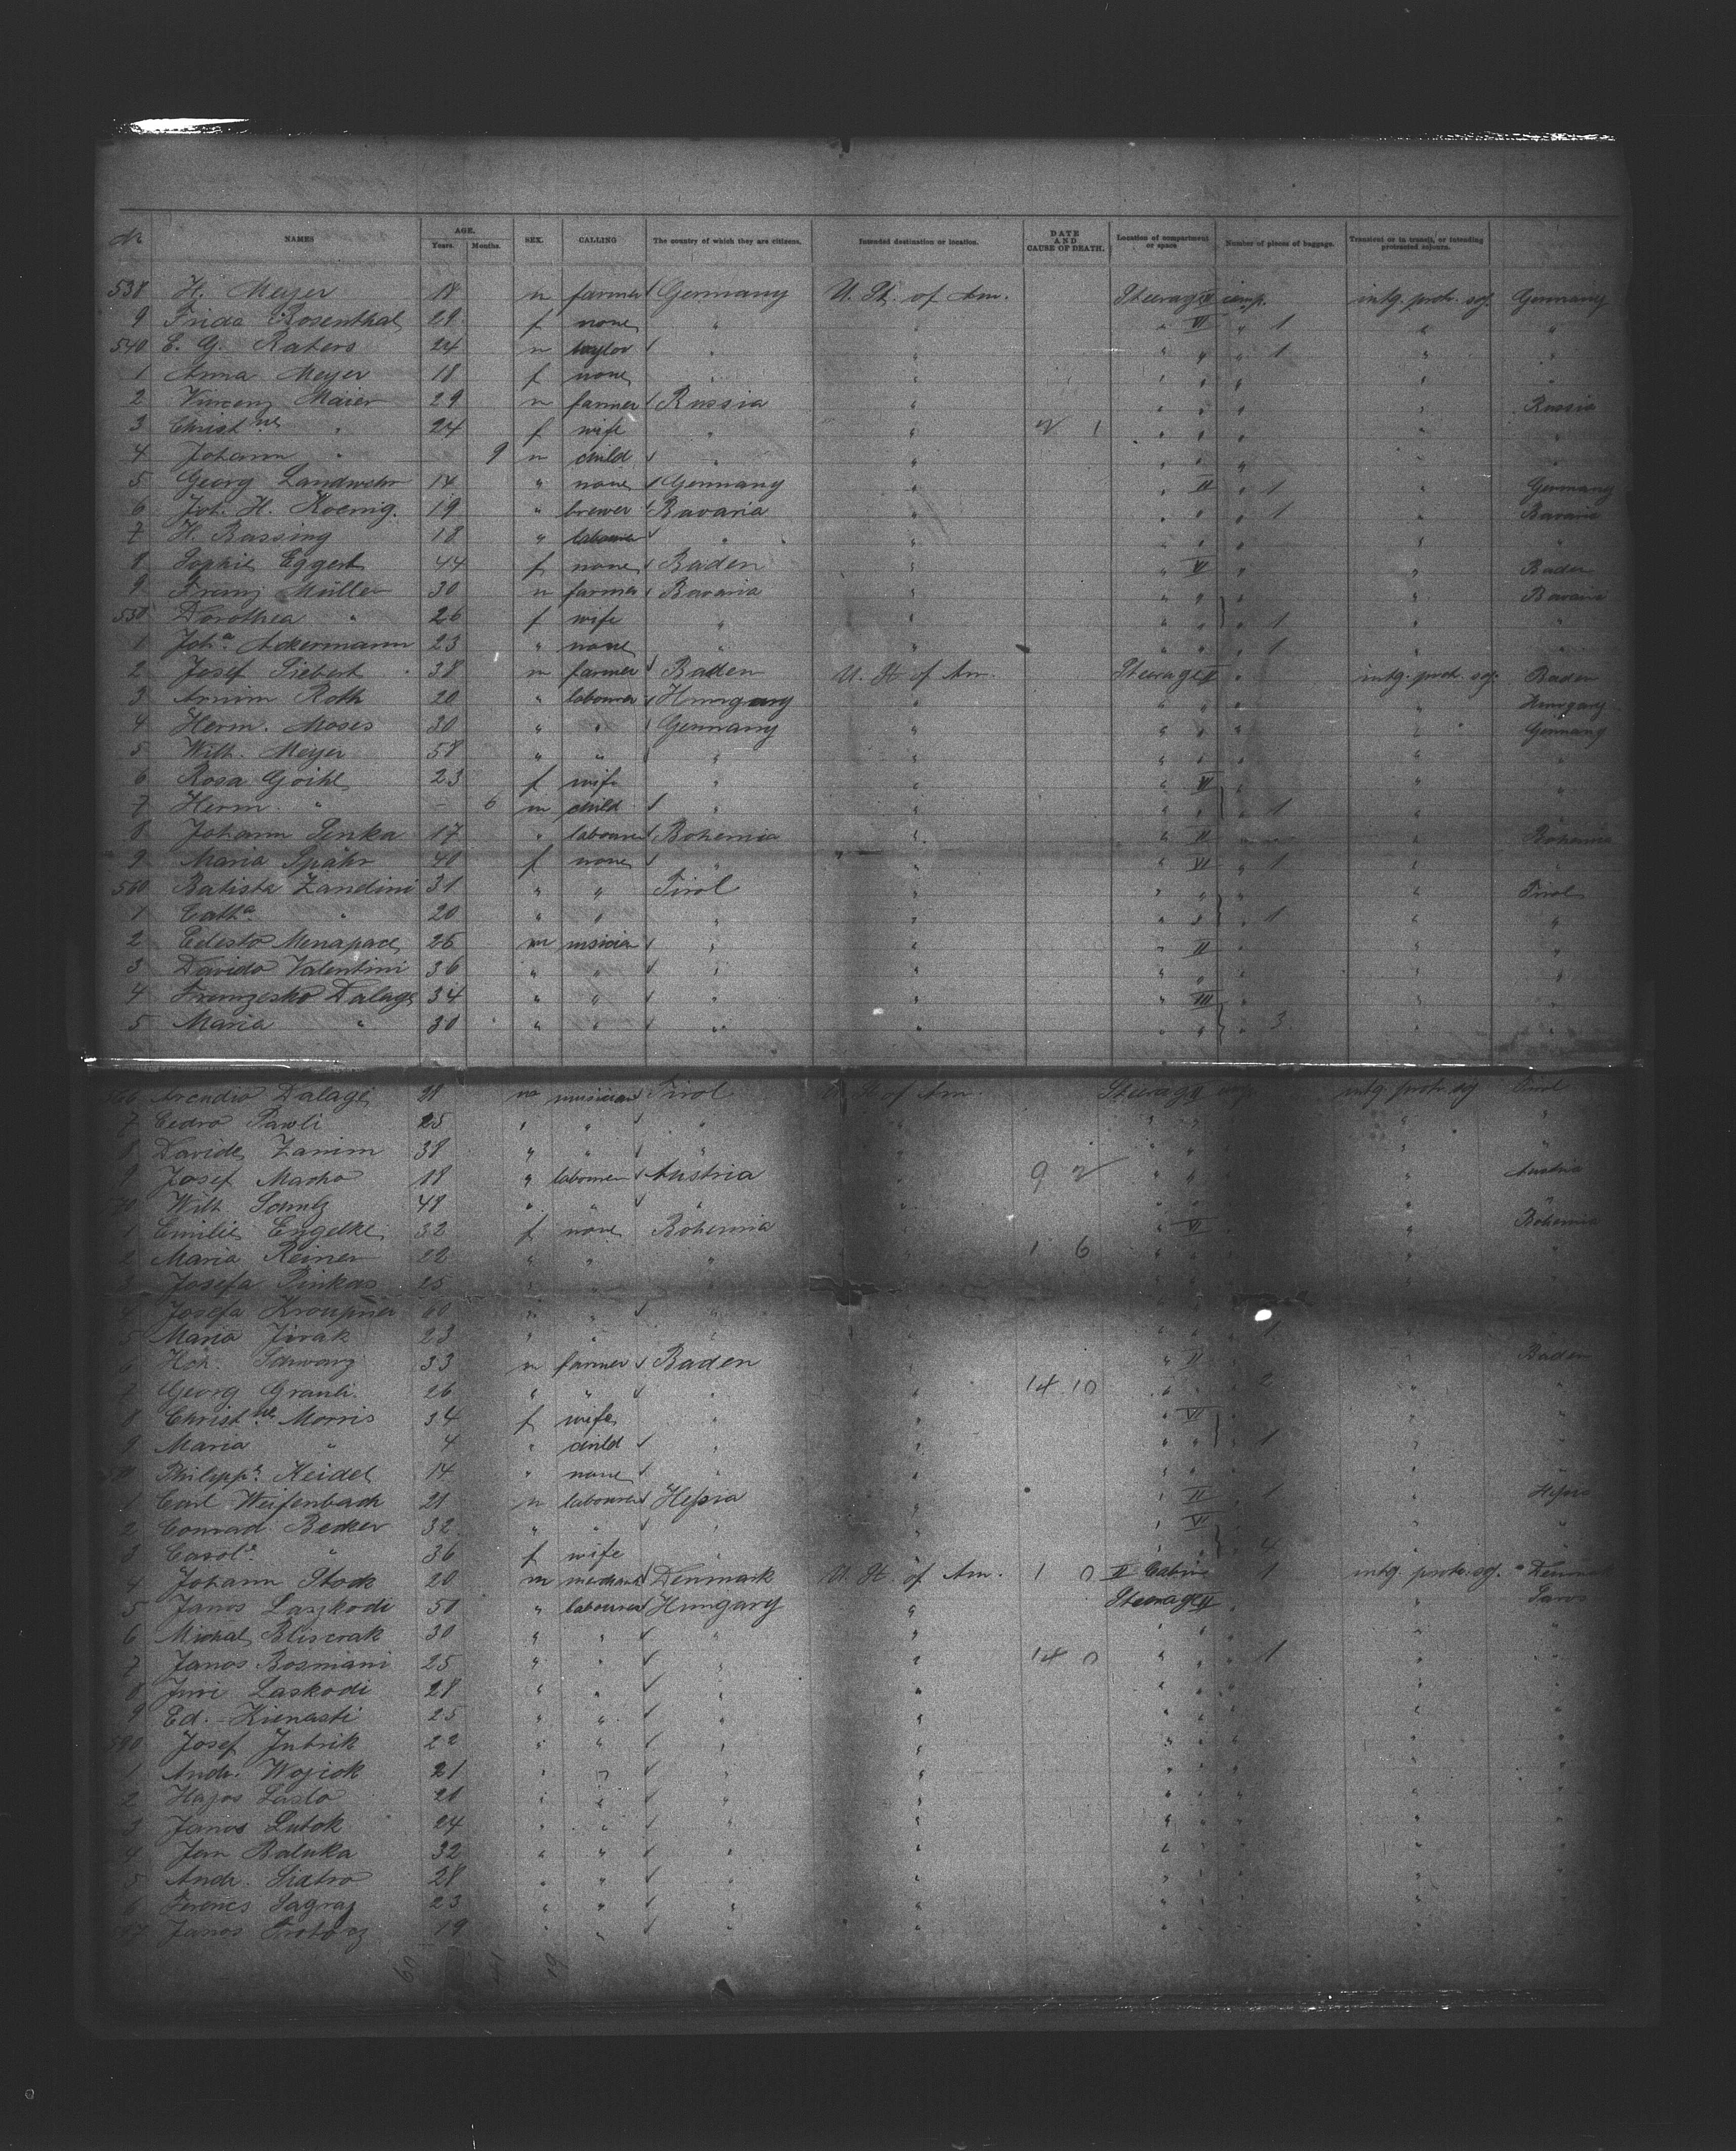 № NAMES AGE. Years. Months. SEX. CALLING The country of which they are citizens. Intended destination or location. DATE AND CAUSE OF DEATH. Location of compartment or space Number of pieces of baggage. Transient or in transit, or intending protracted sojourn.
538 H. Meyer 18 m farmer Germany U. St. of Am. Steerage comp. intg. protr. soj. Germany
9 Frida Rosenthal 29 f none " " " VI " 1 " "
540 E. G. Raters 24 m taylor " " " " " 1 " "
1 Anna Meyer 18 f none " " " " " " "
2 Vincenz Maier 29 m farmer Russia " " " " " Russia
3 Christne " 24 f wife " " 2 1 " " " " "
4 Johann " 9 m child " " " " " " "
5 Georg Landwehr 14 " none Germany " " II " 1 " Germany
6 Joh. H. Koenig. 19 " brewer Bavaria " " " " 1 " Bavaria
7 H. Bassing 18 " labourer " " " " " " "
8 Sophie Eggert 44 f none Baden " " VI " " Baden
9 Franz Müller 30 m farmer Bavaria " " " " " Bavaria
550 Dorothea " 26 f wife " " " " " 1 " "
1 Joha Ackermann 23 " none " " " " " 1 " "
2 Josef Siebert 38 m farmer Baden U. St. of Am. Steerage II " intg. protr. soj. Baden
3 Armin Roth 20 " labourer Hungary " " " " " Hungary
4 Herm. Moses 30 " " Germany " " " " " Germany
5 Wilh. Meyer 58 " " " " " " " " "
6 Rosa Goihl 23 f wife " " " VI " " "
7 Herm. " – 6 m child " " " " " 1 " "
8 Johann Senka 17 " labourer Bohemia " " II " " Bohemia
9 Maria Spähr 40 f none " " " VI " 1 " "
560 Batista Zandini 31 " " Tirol " " " " " Tirol
1 Catha " 20 " " " " " " " 1 " "
2 Celesto Menapace 26 m musician " " " II " " "
3 Davido Valentini 36 " " " " " " " " "
4 Franzesko Dalage 34 " " " " " III " " "
5 Maria " 30 " " " " " " " 3 " "
566 Arcadio Dalage 11 m musician Tirol U. St. of Am. Steerage comp. intg. protr. soj Tirol
7 Cedro Pawli 25 " " " " " " " "
8 Davide Zanim 38 " " " " " " " "
9 Josef Macho 18 " labourer Austria 9 2 " " " Austria
70 Wilh. 48 " " " " " " "
1 Emilie Engelke 32 f none Bohemia " VI " Bohemia
2 Maria Reiner 22 " " " 1 6 " " " "
3 Josefa Pinkas 25 " " "
4 Josefa Kroupner 60 " " "
5 Maria Jirak 23 " " " " " 1
6 Schwarz 33 m farmer Baden " II " " Baden
7 Georg Granli. 26 " " " " 14 10 " " 2 " "
8 Christne Morris 34 f wife " " " VI " " "
9 Maria " 4 " child " " " " " 1 " "
Philippe Heidel 14 " none " " " " " " "
1 Carl Weifenbach 21 m labourer Hessia " " II " 1 " Hessia
2 Conrad Becker 32 " " " " " VI " " "
3 Carole " 36 f wife " " " " 4 " "
4 Johann Stock 20 m Denmark U. St. of Am. 1 0 II Cabine 1 intg. protr. soj. Denmark
5 Janos Laszkodi 50 " labourer Hungary " Steerage II " "
6 Michal Bliscrak 30 " " " " " " " " "
7 Janos Bosniani 25 " " " " 14 0 " " " 1 " "
8 Juri Laskodi 28 " " " " " " " " "
9 Ed. Kienasti 25 " " " " " " " "
590 Josef Jubrik 22 " " " " " " " " "
1 Andr. Wojcick 21 " " " " " " " "
2 Hajos Laslo 21 " " " " " " " " "
3 Janos Lutok 24 " " " " " " " "
4 Jan Baluka 32 " " " " " " " "
5 Andr. Siatro 28 " " " " " " " "
6 Ferencs Sagraj 23 " " " " " " " "
97 Janos 19 " " " " " " "
60 41 19